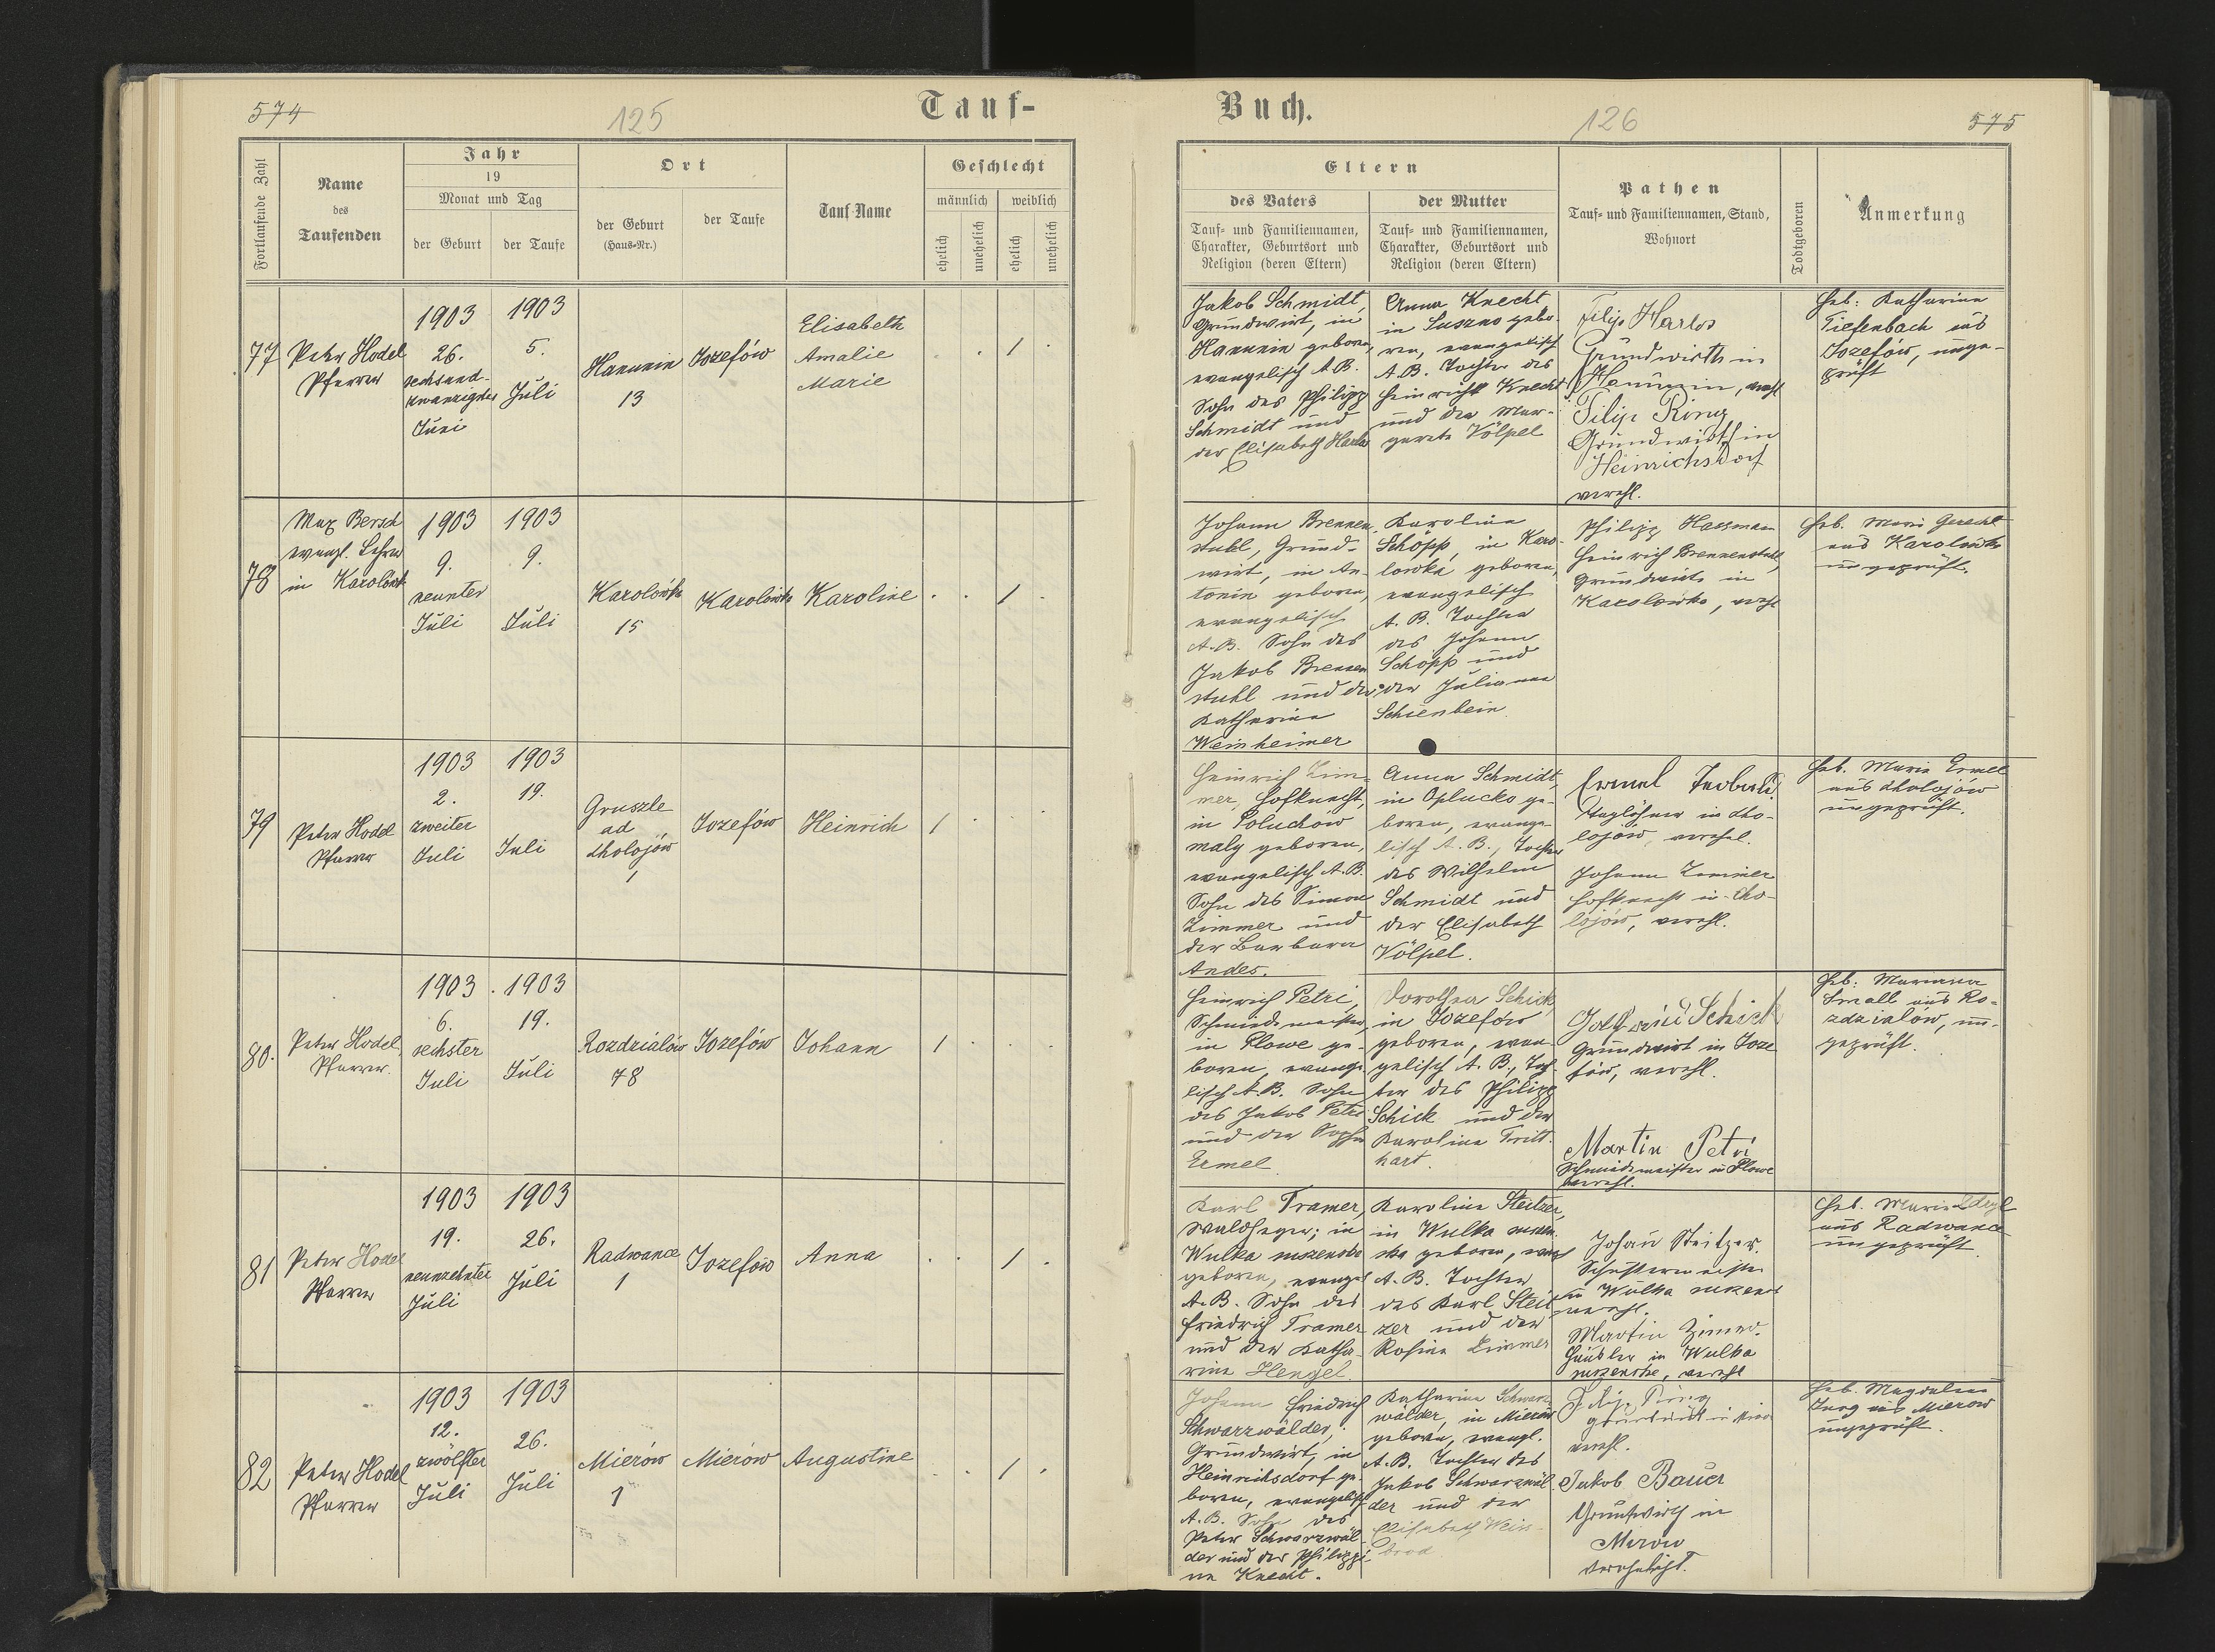 574
125
Tauf-
Fortlaufende Zahl
Name
des
Taufenden
Jahr
19
Monat und Tag
der Geburt
der Taufe
Ort
der Geburt
(Haus-Nr.)
der Taufe
Tauf-Name
Geschlecht
männlich
weiblich
ehelich
unehelich
ehelich
unehelich
77
Peter Hodel
Pfarrer
1903
26.
sechsund-
zwanzigster
Juni
1903
5.
Juli
Hanunin
13
Jozefów
Elisabeth
Amalie
Marie
1
78
Max Bersch
evangl. Lehrer
in Karolówka
1903
9.
neunter
Juli
1903
9.
Juli
Karolówka
15
Karolówka
Karoline
1
79
Peter Hodel
Pfarrer
1903
2.
zweiter
Juli
1903
19.
Juli
Gruszle
ad
Chołojów
1
Jozefów
Heinrich
1
80.
Peter Hodel,
Pfarrer.
1903
6.
sechster
Juli
1903
19.
Juli
Rozdziałów
78
Jozefów
Johann
1
81
Peter Hodel
Pfarrer
1903
19.
neunzehnter
Juli
1903
26.
Juli
Radwance
1
Jozefów
Anna
1
82
Peter Hodel
Pfarrer
1903
12.
zwölfter
Juli
1903
26.
Juli
Mierów
1
Mierów
Augustine
1
Buch.
126
575
Eltern
des Vaters
Tauf- und Familiennamen,
Charakter, Geburtsort und
Religion (deren Eltern)
der Mutter
Tauf- und Familiennamen,
Charakter, Geburtsort und
Religion (deren Eltern)
Pathen
Tauf- und Familiennamen, Stand,
Wohnort
Todtgeboren
Anmerkung
Jakob Schmidt,
Grundwirt, in
Hanunin geboren,
evangelisch A.B.
Sohn des Philipp
Schmidt und
der Elisabeth Harlos
Anna Knecht
in Suszno gebo-
ren, evangelisch
A.B. Tochter des
Heinrich Knecht
und der Mar-
garete Völpel
Filip Harlos
Grundwirth in
Hanunin, verhl
Filip Ring
Grundwirth in
Heinrichsdorf
verehl.
Heb: Katharina
Tiefenbach aus
Jozefów, unge-
prüft
Johann Brennen-
stuhl, Grund-
wirt, in An-
tonin geboren,
evangelisch
A.B. Sohn des
Jakob Brennen
stuhl und der
Katharina
Weinheimer
Karolina
Schöpp, in Karo-
lowka geboren,
evangelisch
A.B. Tochter
des Johann
Schöpp und
der Julianna
Schienbein
Philipp Hassman
Heinrich Brennenstuhl,
Grundwirte in
Karolowka, verhl
Heb. Maria Gerecht
aus Karolówka
ungeprüft.
Heinrich Zim-
mer, Hofknecht,
in Poluchow
maly geboren,
evangelisch A.B.
Sohn des Simon
Zimmer und
der Barbara
Andes.
Anna Schmidt,
in Oplucko ge-
boren, evange-
lisch A.B., Tochter
des Wilhelm
Schmidt und
der Elisabeth
Völpel.
Ermel
Taglöhner in Cho-
lojów, verehel.
Johann Zimmer
Hofknecht in Cho-
lojów, verehl.
Heb. Maria Ermel
aus Cholojów
ungeprüft.
Heinrich Petri,
Schmiedemeister,
in Płowe ge-
boren, evange-
lisch A.B. Sohn
des Jakob Petri
und der Sophie
Ermel
Dorothea Schick,
in Jozefów
geboren, evan-
gelisch A.B., Toch-
ter des Philipp
Schick und der
Karolina Tritt-
hart.
Schick
Grundwirt in Joze
fów, verehl.
Martin Petri
Schmiedmeister in Płowe
verehl.
Heb: Marianna
Small aus Ro-
zdziałów, un-
geprüft.
Karl Tramer,
Waldheger; in
Wulka
geboren, evangel
A.B. Sohn des
Friedrich Tramer
und der Katha-
rina Hengel.
Karolina Steitzer,
in Wulka
geboren, evang
A.B. Tochter
des Karl Steit
zer und der
Rosina Zimmer
Johan Steitzer.
Schustermeister
in Wulka
verehl.
Martin Zimer.
Häusler in Wulka
verehl
Heb. Maria
aus Radwance
ungeprüft.
Johann Friedrich
Schwarzwälder,
Grundwirt, in
Heinrichsdorf ge-
boren, evangelisch
A.B. Sohn des
Peter Schwarzwäl-
der und der Philippi-
ne Knecht.
Katharina Schwarz-
wälder, in Mierów
geboren, evangl.
A.B. Tochter des
Jakob Schwarzwäl-
der und der
Elisabeth Wein-
brod
Filip
verehl.
Jakob Bauer
Grundwirth in
Mirow
verehelicht.
Heb. Magdalena
Jung aus Mierow
ungeprüft.